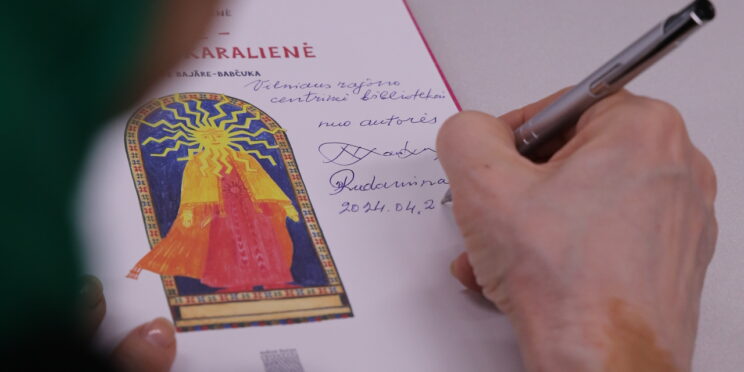 KARALIENĖ
BAJĀRE-BABČUKA
Vilniaus rajono
centrinei bibliotekai
nuo autorės
Rudamina
2024.04.2